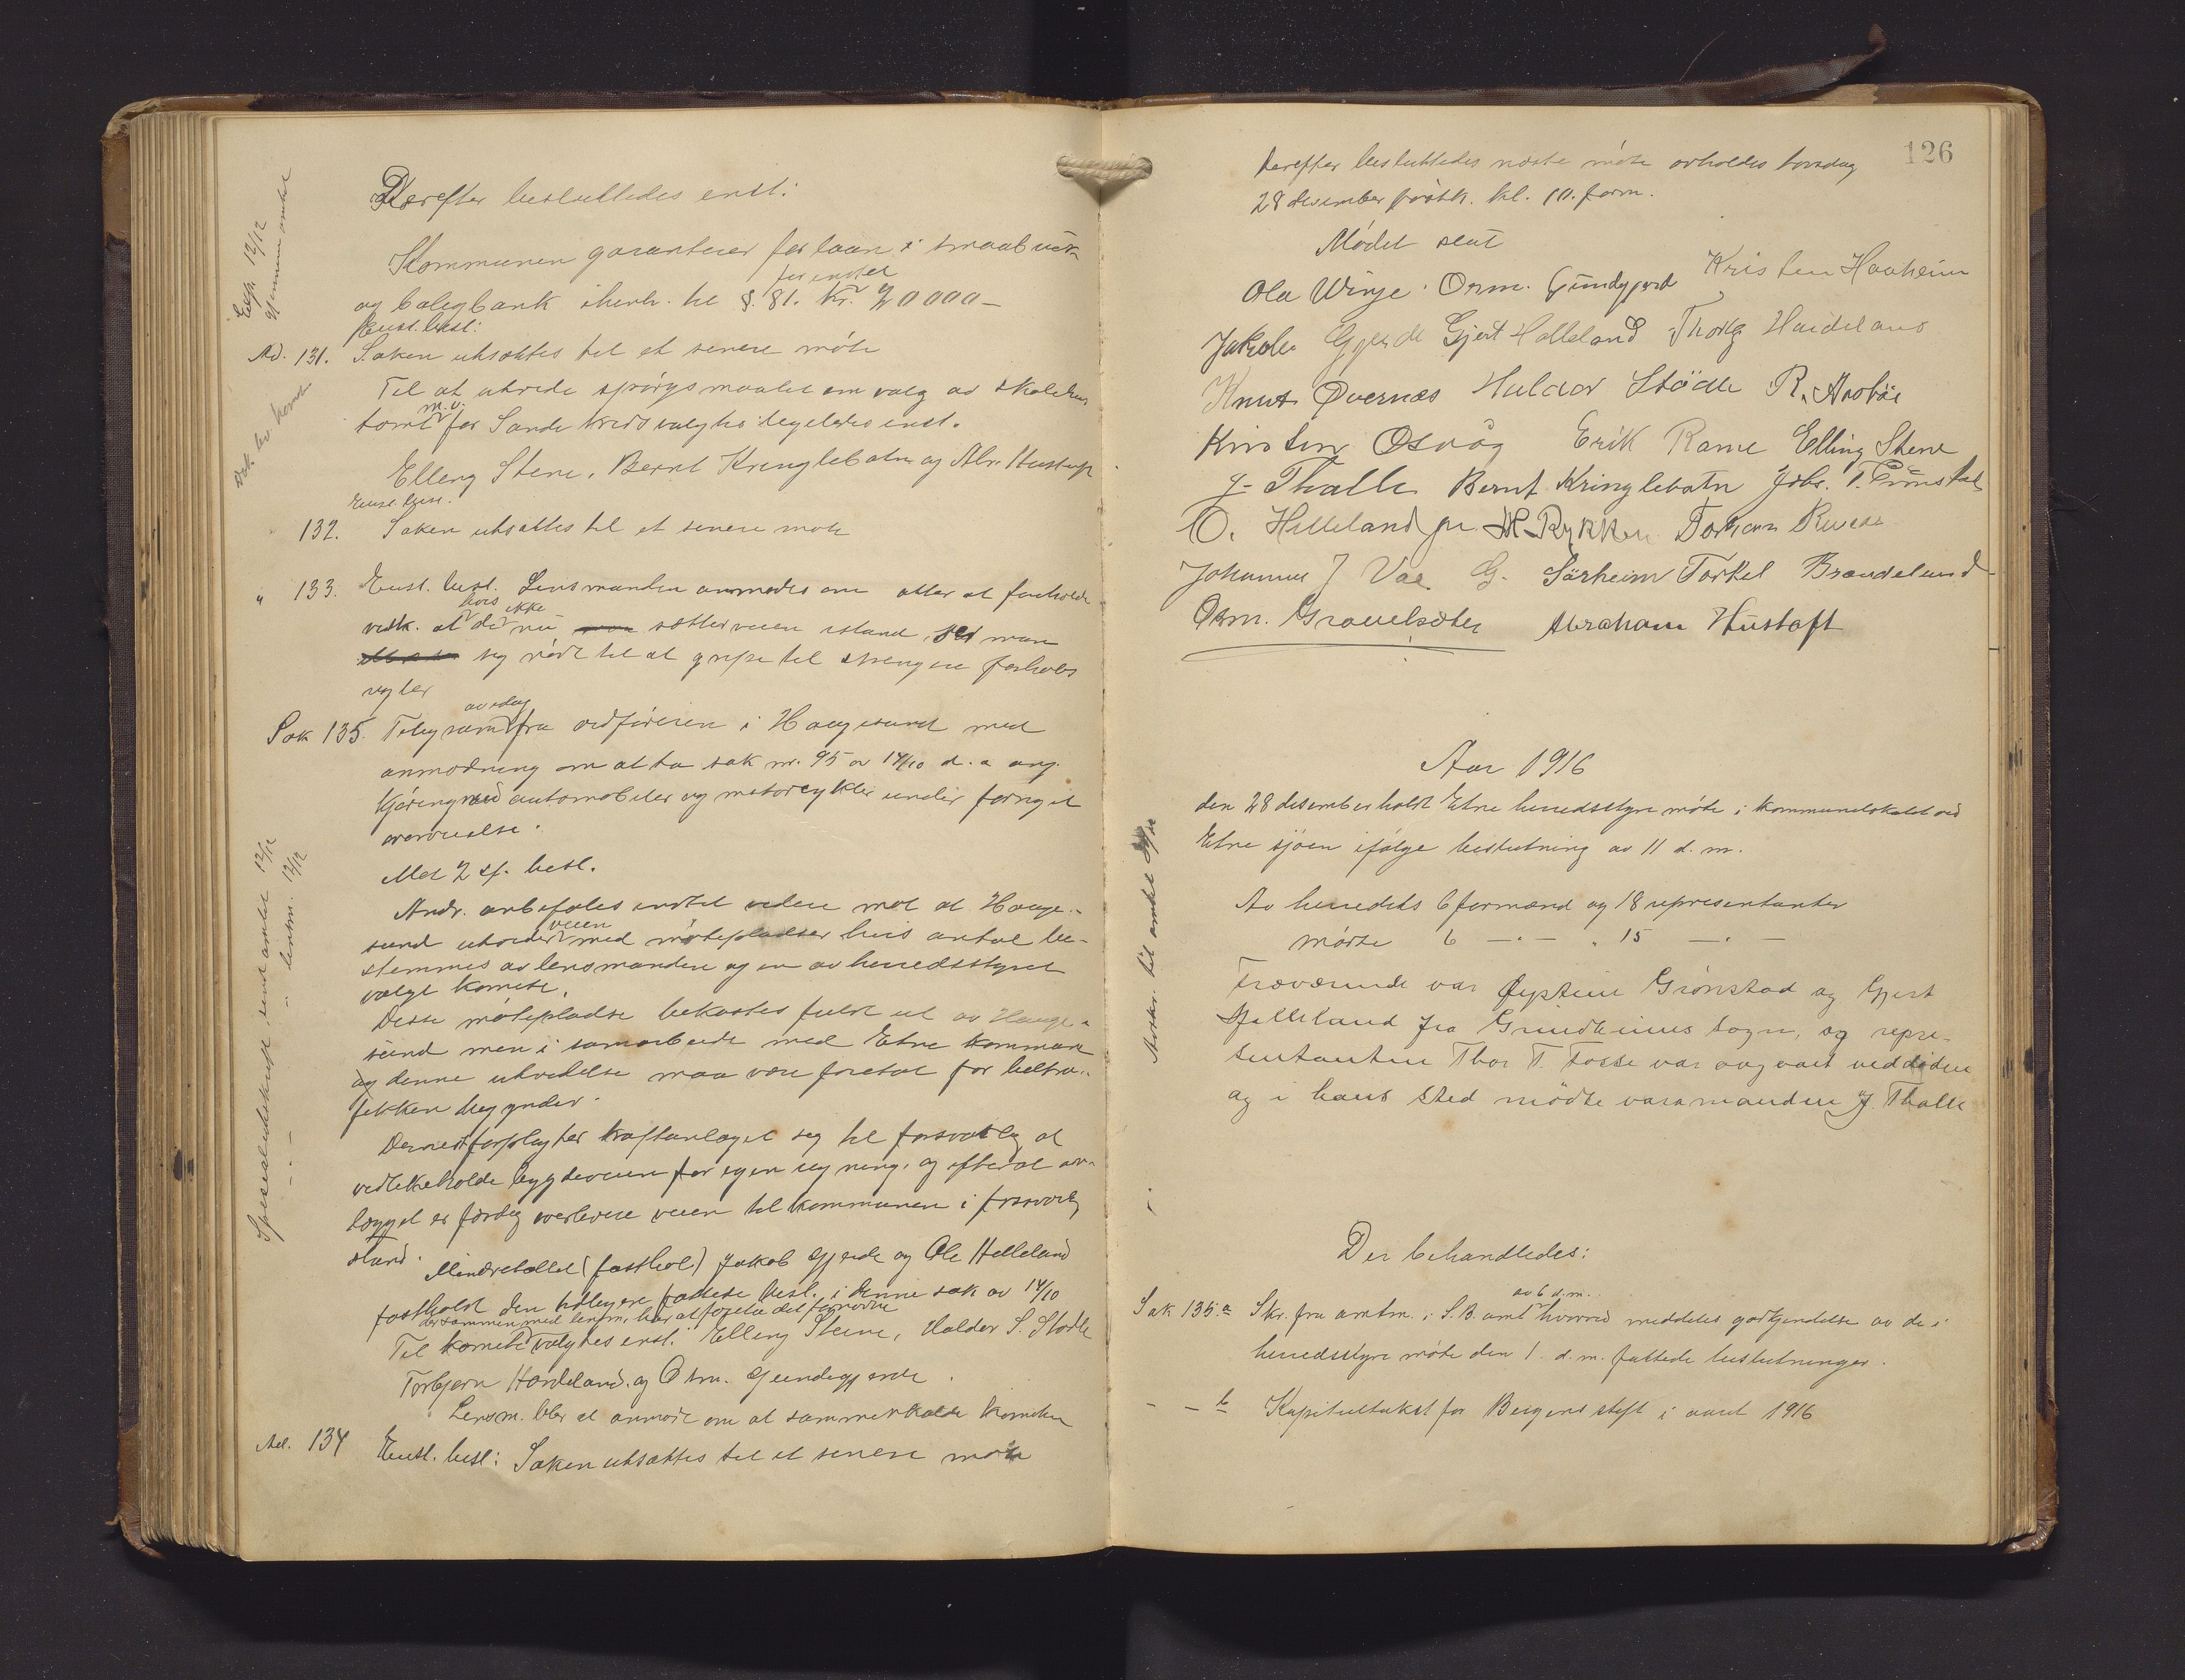 Derefter besluttedes enst:
Kommunen garanterer for laan i smaabruk
og boligbank ihenh. til §. 81. for inntil kr. 20000-
Enst. besl:
Ad. 131. Saken utsættes til et senere møte
Til at utrede spørgsmaalet om valg av skolehus
tomt m.v. for Sande kreds valgtes ligeledes enst.
Elling Stene, Bernt Kringlebotn og Abr. Hustoft
Enst. besl.
132. Saken utsattes til et senere møte
" 133. Enst. besl. Lensmanden anmodes om atter at foreholde
vedk. at hvis de ikke nu sætter veien istand, ser man
sig nødt til at gripe til strengere forholds
regler
Sak 135. Telegram av idag fra ordføreren i Haugesund med
anmodning om at ta sak nr. 95 av 14/10 d. a. ang.
kjøring med automobiler og motorcykler under fornyet
overveielse.
Med 2 st. besl.
Andr. anbefales indtil videre mot at Hauge-
sund utvider veien med møtepladser hvis antal be-
stemmes av lensmanden og en av herredsstyret
valgt komite.
Disse møtepladse bekostes fuldt ut av Hauge-
sund men i samarbeide med Etne kommune
og denne utvidelse maa være foretat før biltra-
fikken begynder.
Dernest forpligter kraftanlægget sig til forsvarlig at
vedlikeholde bygdeveien for egen regning, og efterat an-
lægget er færdig overlevere veien til kommunen i forsvarlig
stand.
Mindretallet (fasthol) Jakob Gjerde og Ole Helleland
fastholdt den tidligere fattede besl. i denne sak av 14/10
Til komite der sammen med lensm. har at foreta det fornødne valgtes enst: Elling Stene, Haldor S. Stødle
Torbjørn Hardeland og Osm. Grindegjerde.
Lensm. blir at anmode om at sammenkalde komiten
Ad. 134 Enst. besl: Saken utsættes til et senere møte
Exp. 12/12
gjennem amtet
Spesialutskrift sendt amtet 12/12
— " — lensm. 12/12
126
Derefter besluttedes næste møte avholdes torsdag
28 desember førstk. kl. 10. form.
Mødet slut
Ola Winje. Osm. Grindgjerd Kristen Haaheim
Jakob Gjerde Gjert Helleland Thorbj Hardeland
Knut Øvernæs Haldor Stødle R. Aasbøe
Kristen Osvåg Erik Rame Elling Stene
J. Thalle Bernt Kringlebotn Johs. T. Grønstad
O. Helleland jr. M Rykken Torkam
Johannes J Vae G. Særheim Torkel Brandelund
Osm. Gravelsæter Abraham Hustoft
Aar 1916
den 28 desember holdt Etne herredsstyre møte i kommunelokalet ved
Etne sjøen ifølge beslutning av 11 d. m.
Av herredets 6 formænd og 18 representanter
mødte 6 — " — " 15 — " —
Fraværende var Øystein Grønstad og Gjert
Helleland fra Grindheims sogn, og repre-
sentanten Thor T. Fosse var avgaat ved døden
og i hans sted mødte varamanden J. Thalle
Der behandledes:
Sak 135.a Skr. fra amtm. i S. B. amt av 6 d.m. hvorved meddeles godkjendelse av de i
herredsstyre møte den 1. d. m. fattede beslutninger.
— " — b Kapitelstakst for Bergens stift i aaret 1916